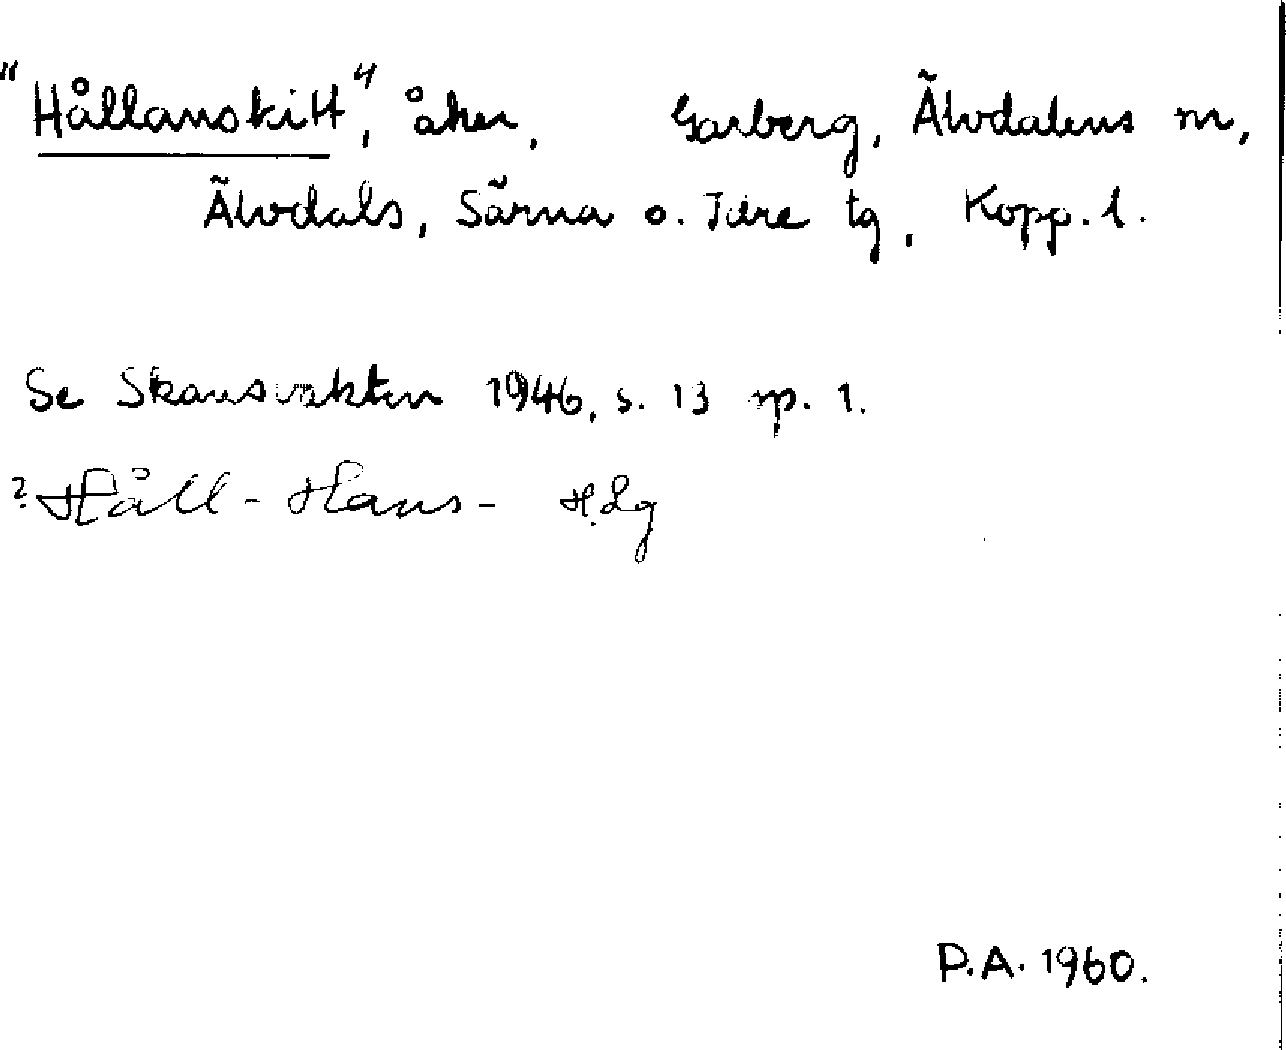 "Hållanskitt", åker, Garberg, Älvdalens m,
Älvdals, Särna o. Idre tg, Kopp. l.
Se Skansvakten 1946, s. 13 sp. 1.
? Håll - Hans - H.Lg
P.A. 1960.